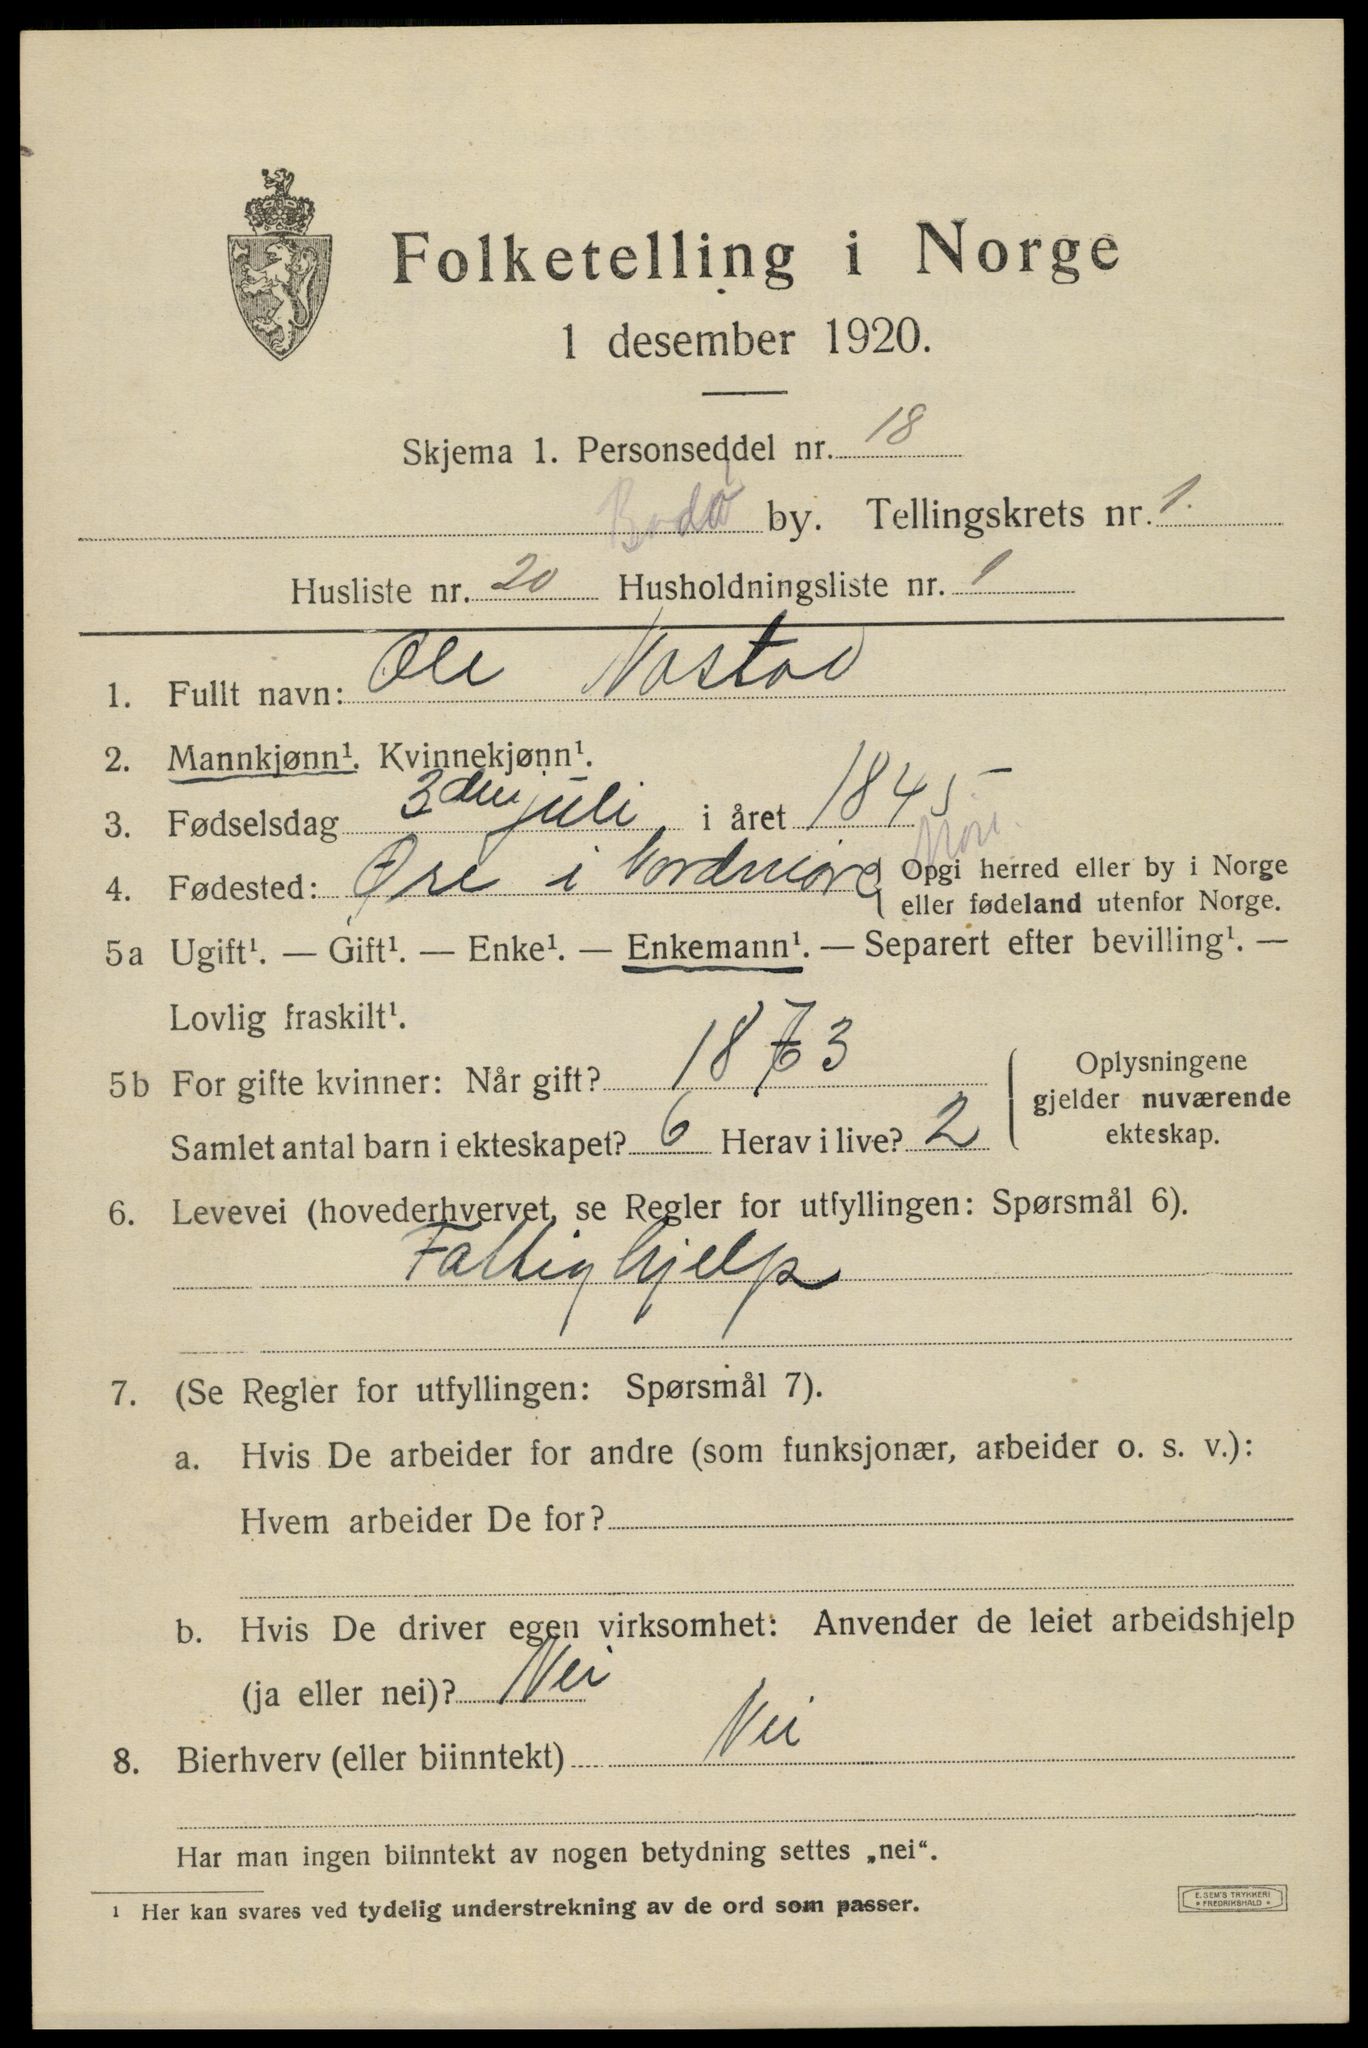 Folketelling i Norge
1 desember 1920.
Skjema 1. Personseddel nr. 18
Bodø by. Tellingskrets nr. 1.
Husliste nr. 20 Husholdningsliste nr. 1
1. Fullt navn: Ole Nostad
2. Mannkjønn¹. Kvinnekjønn¹.
3. Fødselsdag 3den juli i året 1845
4. Fødested: Øre i Nordmøre Møre. Opgi herred eller by i Norge
eller fødeland utenfor Norge.
5a Ugift¹. — Gift¹. — Enke¹. — Enkemann¹. — Separert efter bevilling¹. —
Lovlig fraskilt¹.
5b For gifte kvinner: Når gift? 1873
Samlet antal barn i ekteskapet? 6 Herav i live? 2
Oplysningene
gjelder nuværende
ekteskap.
6. Levevei (hovederhvervet, se Regler for utfyllingen: Spørsmål 6).
Fattighjelp
7. (Se Regler for utfyllingen: Spørsmål 7).
a. Hvis De arbeider for andre (som funksjonær, arbeider o. s. v.):
Hvem arbeider De for?
b. Hvis De driver egen virksomhet: Anvender de leiet arbeidshjelp
(ja eller nei)? Nei
8. Bierhverv (eller biinntekt) Nei
Har man ingen biinntekt av nogen betydning settes „nei“.
¹ Her kan svares ved tydelig understrekning av de ord som passer.
E. SEM'S TRYKKERI
* FREDRIKSHALD *